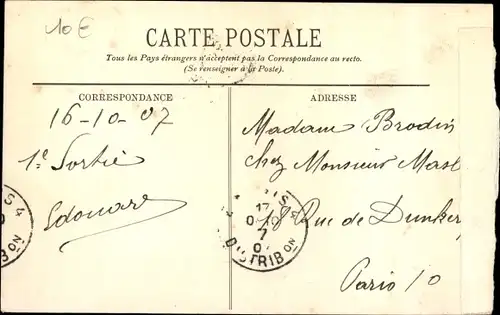 10 €
CARTE POSTALE
Tous les Pays étrangers n'acceptent pas la Correspondance au recto.
(Se renseigner à la Poste).
CORRESPONDANCE
ADRESSE
16-10-07
1e Sortie
Edouard
Madame Brodin
Chez Monsieur Mast
18 Rue de Dunker
Paris 10
S 4
BON
IS
17
7
0
DISTRIBON